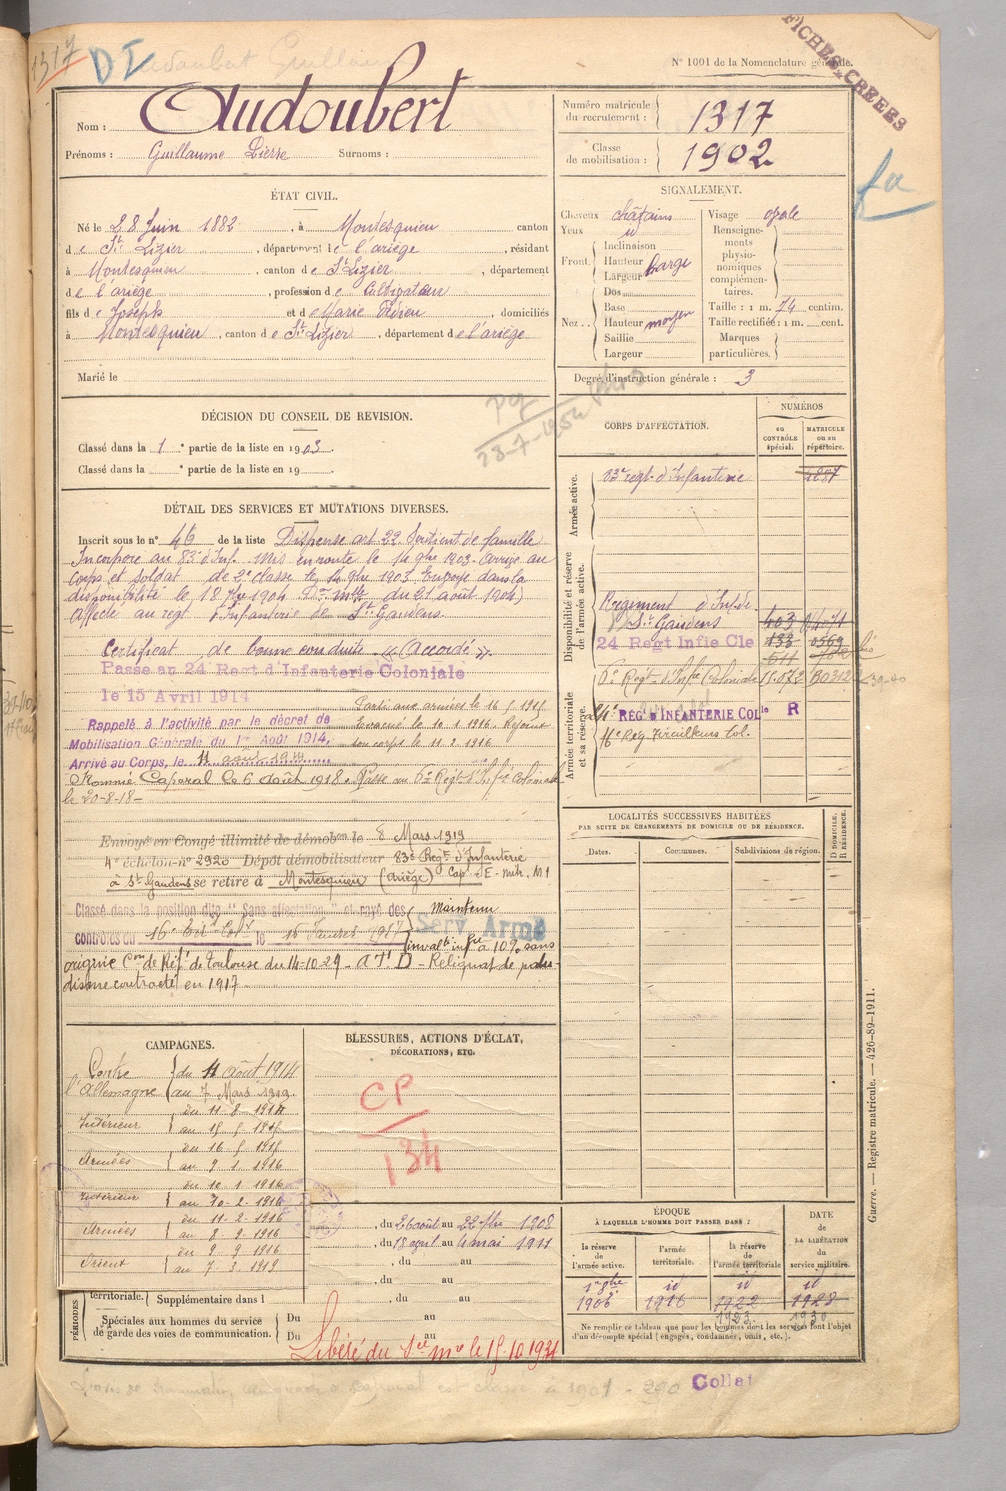 1317
DI
N° 1001 de la Nomenclature générale.
FICHES CREEES
Nom : Audoubert
Prénoms : Guillaume Pierre Surnoms :
Numéro matricule du recrutement : 1317
Classe de mobilisation : 1902
ÉTAT CIVIL.
Né le 28 Juin 1882, à Montesquieu canton
de St Lizier, département de l'ariège, résidant
à Montesquieu, canton de St Lizier, département
de l'ariège, profession de Cultivateur
fils de Joseph et de Marie domiciliés
à Montesquieu, canton de St Lizier, département de l'ariège
Marié le
SIGNALEMENT.
Cheveux châtains
Yeux
Front. Inclinaison
Hauteur
Largeur large
Nez. Dos
Base
Hauteur moyen
Saillie
Largeur
Visage ovale
Renseignements physionomiques complémentaires.
Taille : 1 m. 74 centim.
Taille rectifiée : 1 m. cent.
Marques particulières.
Degré d'instruction générale : 3
DÉCISION DU CONSEIL DE REVISION.
Classé dans la 1e partie de la liste en 1903.
Classé dans la e partie de la liste en 19
23-7-1954
DÉTAIL DES SERVICES ET MUTATIONS DIVERSES.
Inscrit sous le n° 46 de la liste Dispensé art 22 Soutient de famille
Incorporé au 83e d'Inf. Mis en route le 14 9bre 1903. Arrivé au
Corps et soldat de 2e classe le 14 9bre 1903. Envoyé dans la
disponibilité le 18 7bre 1904 (Don mlle du 21 août 1904)
Affecté au regt d'Infanterie de St Gaudens.
Certificat de bonne conduite « Accordé ».
Passe au 24e Regt d'Infanterie Coloniale
le 15 Avril 1914
Rappelé à l'activité par le décret de
Mobilisation Générale du 1er Août 1914,
Arrivé au Corps, le 11 août 1914
Parti aux armées le 16
Evacué le 10-1-1916. Rejoint
son corps le 11 2 1916
Nommé Caporal le 6 Août 1918. Passé au 6e Régt d'Infie Coloniale
le 20-8-18
Envoyé en Congé illimité de démobon le 8 Mars 1919
4e échelon n° 2920 Dépôt démobilisateur 83e Regt d'Infanterie
à St Gaudens se retire à Montesquieu (Ariège)
Classé dans la position dite "Sans affectation" et rayé des
contrôles du 16e
Maintenu
Serv Armé
invalté infre à 10% sans
origine Con de Réfe de Toulouse du 14-10-29 - ATD - Reliquat de palu-
disme contracté en 1917
CORPS D'AFFECTATION.
NUMÉROS
au CONTRÔLE spécial.
MATRICULE ou au répertoire.
Armée active.
83e regt d'Infanterie 4287
Disponibilité et réserve de l'armée active.
Régiment d'Infie
d/ St Gaudens 403
24 Regt Infie Cle 133 0569
6e Régt d'Infie Coloniale
Armée territoriale et sa réserve.
RÉGt d'INFANTERIE COLle R
16e Reg Tirailleurs Col.
LOCALITÉS SUCCESSIVES HABITÉES
PAR SUITE DE CHANGEMENTS DE DOMICILE OU DE RÉSIDENCE.
Dates. Communes. Subdivisions de région. D DOMICILE. R RÉSIDENCE.
CAMPAGNES.
Contre l'Allemagne du 11 Août 1914
au 7 Mars 1919
Intérieur du 11-8-1914
au 15
Armées du 16
au 9 1. 1916
Intérieur du 10-1 1916
au 10-2-1916
Armées du 11-2-1916
au 8-9-1916
Orient du 9 9 1916
au 7-3-1919
BLESSURES, ACTIONS D'ÉCLAT,
DÉCORATIONS, ETC.
CP
134
PÉRIODES
, du 26 août au 22 7bre 1908
, du 18 avril au 4 mai 1911
, du au
, du au
territoriale. Supplémentaire dans l , du au
Spéciales aux hommes du service de garde des voies de communication. Du au
Du au
Libéré du Sce mre le 15.10.1931
ÉPOQUE
À LAQUELLE L'HOMME DOIT PASSER DANS :
la réserve de l'armée active. l'armée territoriale. la réserve de l'armée territoriale
DATE de LA LIBÉRATION du service militaire.
1er 9bre 1906 id 1916 id 1922 id 1928
1923 1930
Ne remplir ce tableau que pour les hommes dont les services font l'objet
d'un décompte spécial (engagés, condamnés, omis, etc.).
Guerre. — Registre matricule. — 426-89-1911.
Collat